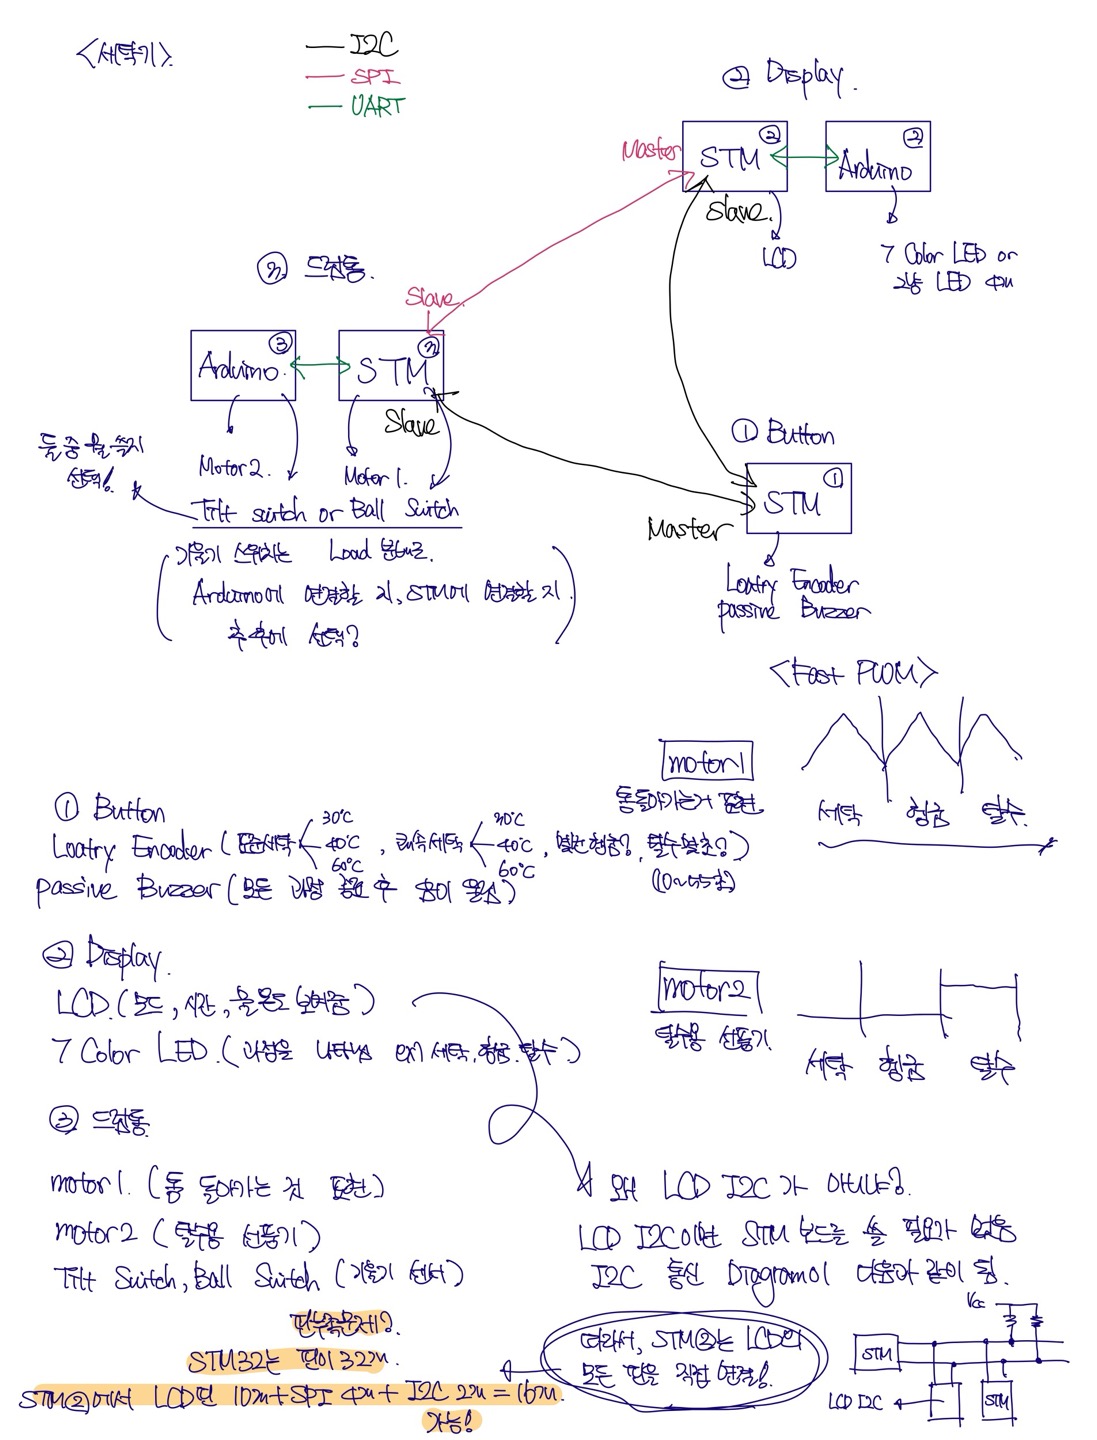 <세탁기>
I2C
SPI
UART
② Display.
Master
STM ②
Arduino ②
Slave.
LCD
7 Color LED or
그냥 LED 4개
③ 드럼통.
Slave.
Arduino. ③
STM ③
Slave
둘 중 뭘 쓸지
선택!
Motor2.
Motor1.
Tilt switch or Ball Switch
기울기 스위치는 Load 분배로.
Arduino에 연결할 지, STM에 연결할 지.
추후에 선택?
① Button
STM ①
Master
Loatry Encoder
passive Buzzer
<Fast PWM>
motor1
통돌아가는거 표현.
세탁 헹굼 탈수.
① Button
Loatry Encoder (표준세탁 30℃ 40℃ 60℃, 쾌속세탁 30℃ 40℃ 60℃, 몇번 헹굼?, 탈수 몇초?)
passive Buzzer (모든 과정 종료 후 음이 울림)
② Display.
LCD. (모드, 시간, 물온도 보여줌)
7 Color LED. (과정을 나타냄 ex) 세탁, 헹굼, 탈수)
motor2
탈수용 선풍기.
세탁 헹굼 탈수
③ 드럼통
motor1. (통 돌아가는 것 표현)
motor2 (탈수용 선풍기)
Tilt Switch, Ball Switch (기울기 센서)
왜 LCD I2C가 아니냐?
LCD I2C이면 STM 보드를 쓸 필요가 없음
I2C 통신 Diagram이 다음과 같이 됨.
핀부족문제?
STM32는 핀이 32개.
STM②에서 LCD핀 10개+SPI 4개+I2C 2개=16개.
가능!
따라서, STM②는 LCD의
모든 핀을 직접 연결!
Vcc
STM
LCD I2C
STM